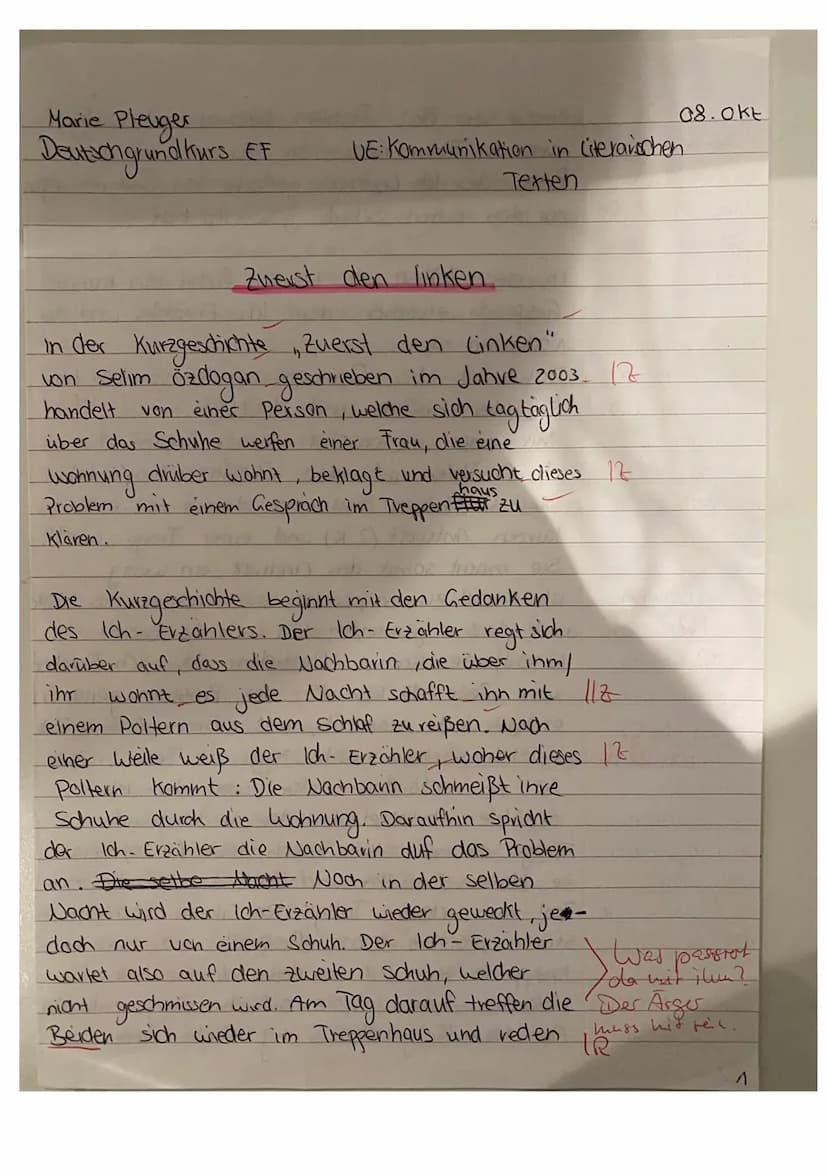 Marie Pleuger
08. Okt
Deutschgrundkurs EF UE: Kommunikation in literarischen
Texten
Zuerst den linken
In der Kurzgeschichte „Zuerst den Linken"
von Selim Özdogan geschrieben im Jahre 2003. 1Z
handelt von einer Person, welche sich tagtäglich
über das Schuhe werfen einer Frau, die eine
Wohnung drüber wohnt, beklagt und versucht dieses 1Z
Problem mit einem Gespräch im Treppenhaus zu
klären.
Die Kurzgeschichte beginnt mit den Gedanken
des Ich-Erzählers. Der Ich-Erzähler regt sich
darüber auf, dass die Nachbarin, die über ihm/
ihr wohnt es jede Nacht schafft ihn mit 11Z
einem Poltern aus dem Schlaf zu reißen. Nach
einer Weile weiß der Ich-Erzähler, woher dieses 1Z
Poltern kommt: Die Nachbarin schmeißt ihre
Schuhe durch die Wohnung. Daraufhin spricht
der Ich-Erzähler die Nachbarin auf das Problem
an. Die selbe Nacht Noch in der selben
Nacht wird der Ich-Erzähler wieder geweckt, je-
doch nur von einem Schuh. Der Ich-Erzähler
wartet also auf den zweiten Schuh, welcher
nicht geschmissen wird. Am Tag darauf treffen die
Beiden sich wieder im Treppenhaus und reden 1R
Was passiert
da mit ihm?
Der Ärger
muss mit rein.
1